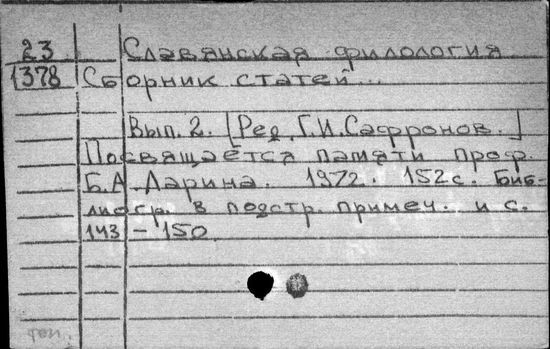 23 Славянская филология
1378 Сборник статей...
Вып. 2. [Ред. Г.И. Сафронов.]
Посвящается памяти проф.
Б.А. Ларина. 1972. 152 с. Биб-
лиогр. в подстр. примеч. и с.
143 – 150